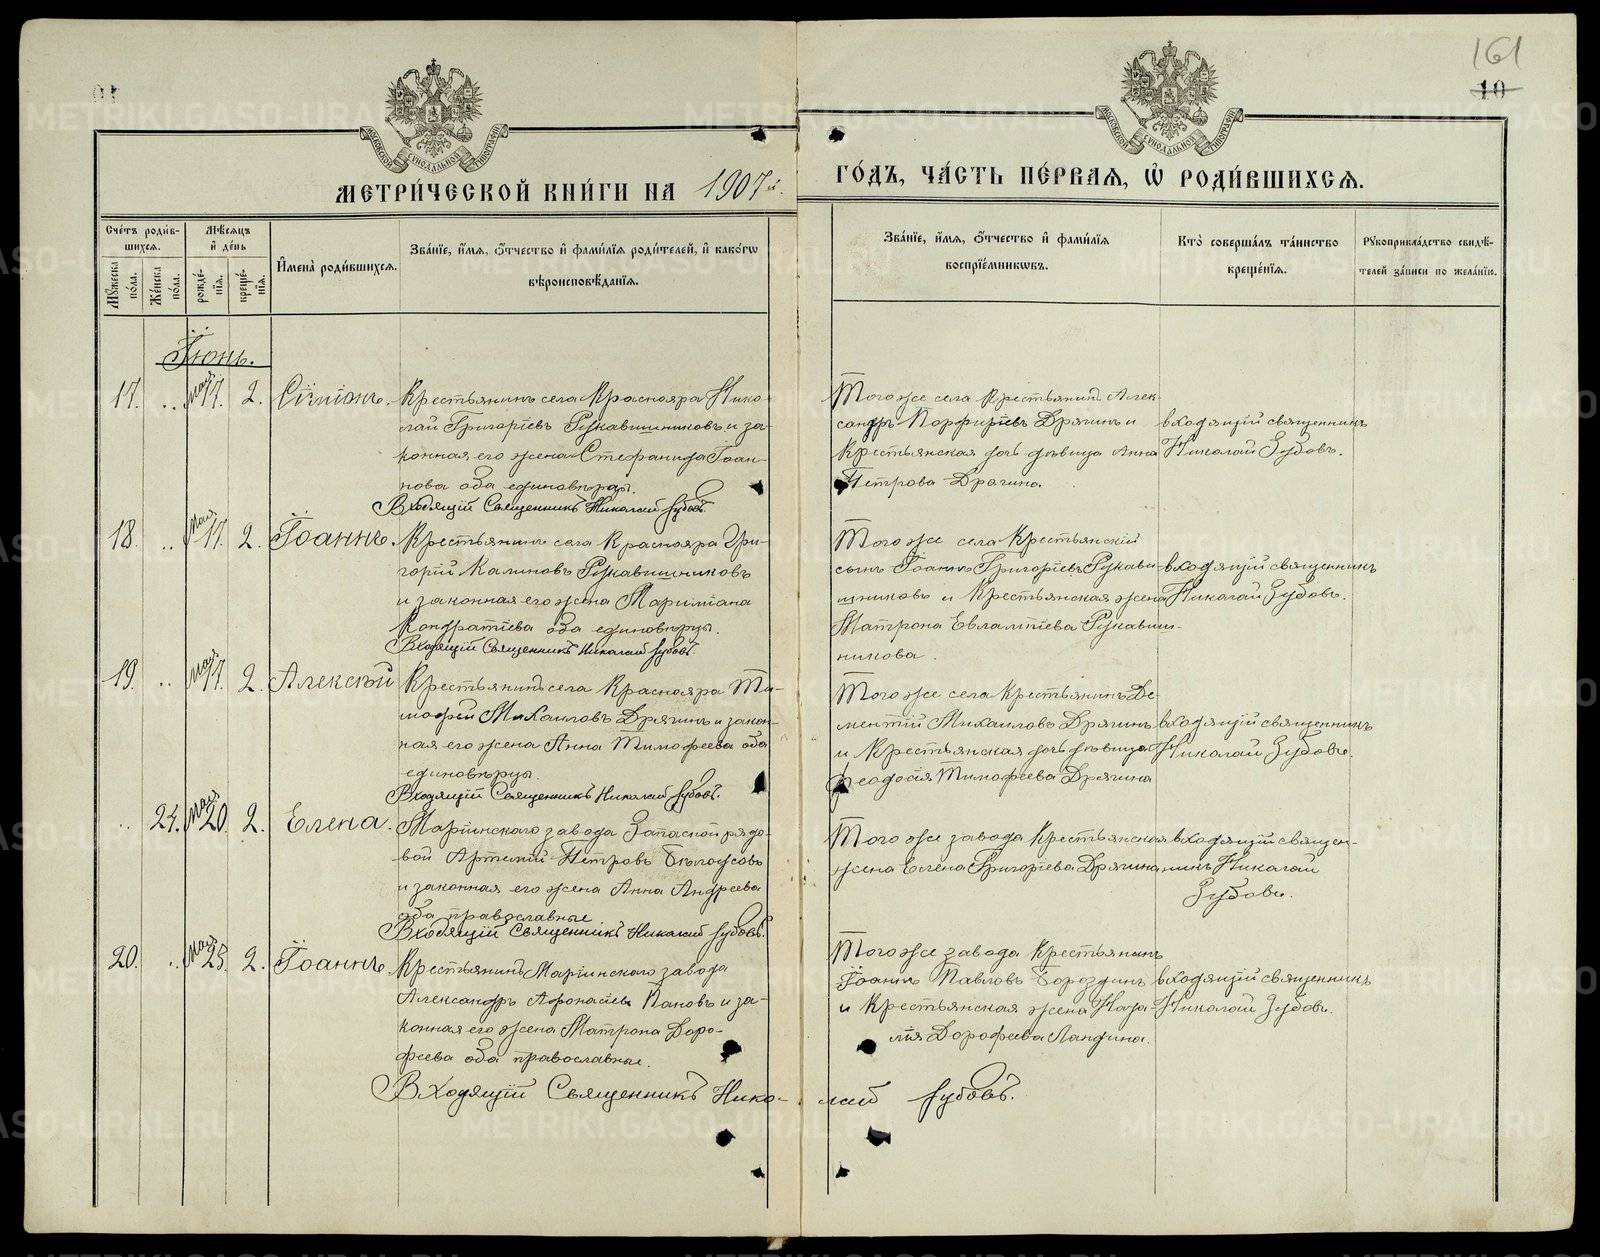 161
10
МОСКОВСКОЙ СѴНОДАЛЬНОЙ ТИПОГРАФІИ
МОСКОВСКОЙ СѴНОДАЛЬНОЙ ТИПОГРАФІИ
МЕТРИ́ЧЕСКОЙ КНИ́ГИ НА 1907й. ГО́ДЪ, ЧА́СТЬ ПЕ́РВАЯ, Ѡ҆ РОДИ́ВШИХСЯ.
Сче́тъ роди́в-
шихся.
Му́жеска по́ла.
Же́нска по́ла.
Мѣ́сяцъ
и҆ де́нь
рожде́-
нїѧ.
креще́-
нїѧ.
И҆мена̀ роди́вшихся.
Зва́нїе, и҆́мя, о҆́тчество и҆ фами́лїя роди́телей, и҆ како́гѡ
вѣроисповѣ́данїя.
Зва́нїе, и҆́мя, о҆́тчество и҆ фами́лїя
воспрїе́мникѡвъ.
Кто̀ соверша́лъ та́инство
креще́нїя.
Рꙋкоприкла́дство свидѣ́-
телей за́писи по жела́нїю.
Іюнь.
17. „ мая 17. 2. Сѵмеонъ.
Крестьянинъ села Краснояра Нико-
лай Григоріевъ Рукавишниковъ и за-
конная его жена Стефанида Іоан-
нова оба единовѣрцы.
Входящій Священникъ Николай Зубовъ.
Того же села Крестьянинъ Алек-
сандръ Порфиріевъ Дрягинъ и
крестьянская дочь дѣвица Анна
Петрова Драгина.
входящій священникъ
Николай Зубовъ.
18. „ Мая 17. 2. Іоаннъ.
Крестьянинъ села Краснояра Гри-
горій Калиновъ Рукавишниковъ
и законная его жена Маріміана
Кондратіева оба единовѣрцы.
Входящій Священникъ Николай Зубовъ.
Того же села Крестьянскій
сынъ Іоаннъ Григоріевъ Рукави-
шниковъ и Крестьянская жена
Матрона Евлампіева Рукавиш-
никова.
входящій священникъ
Николай Зубовъ.
19. „ мая 17. 2. Алексѣй
Крестьянинъ села Краснояра Ти-
мофей Михаиловъ Дрягинъ и закон-
ная его жена Анна Тимофеева оба
единовѣрцы.
Входящій Священникъ Николай Зубовъ.
Того же села Крестьянинъ Де-
ментій Михаиловъ Дрягинъ
и Крестьянская дочь дѣвица
Феодосія Тимофеева Дрягина
входящій священникъ
Николай Зубовъ.
„ 24. Мая 20. 2. Елена.
Маріинскаго завода Запасной рядо-
вой Артемій Петровъ Бѣлоусовъ
и законная его жена Анна Андреева
оба православные
Входящій Священникъ Николай Зубовъ.
Того же завода Крестьянская
жена Елена Григоріева Дрягина
входящій священ-
никъ Николай
Зубовъ.
20. „ Мая 25. 2. Іоаннъ
Крестьянинъ Маріинскаго завода
Александръ Афонасіевъ Пановъ и за-
конная его жена Матрона Доро-
феева оба православные.
Того же завода Крестьянинъ
Іоаннъ Павловъ Бороздинъ
и Крестьянская жена Ната-
лія Дорофеева Ландина.
входящій священникъ
Николай Зубовъ.
Входящій Священникъ Нико-лай Зубовъ.
METRIKI.GASO-URAL.RU